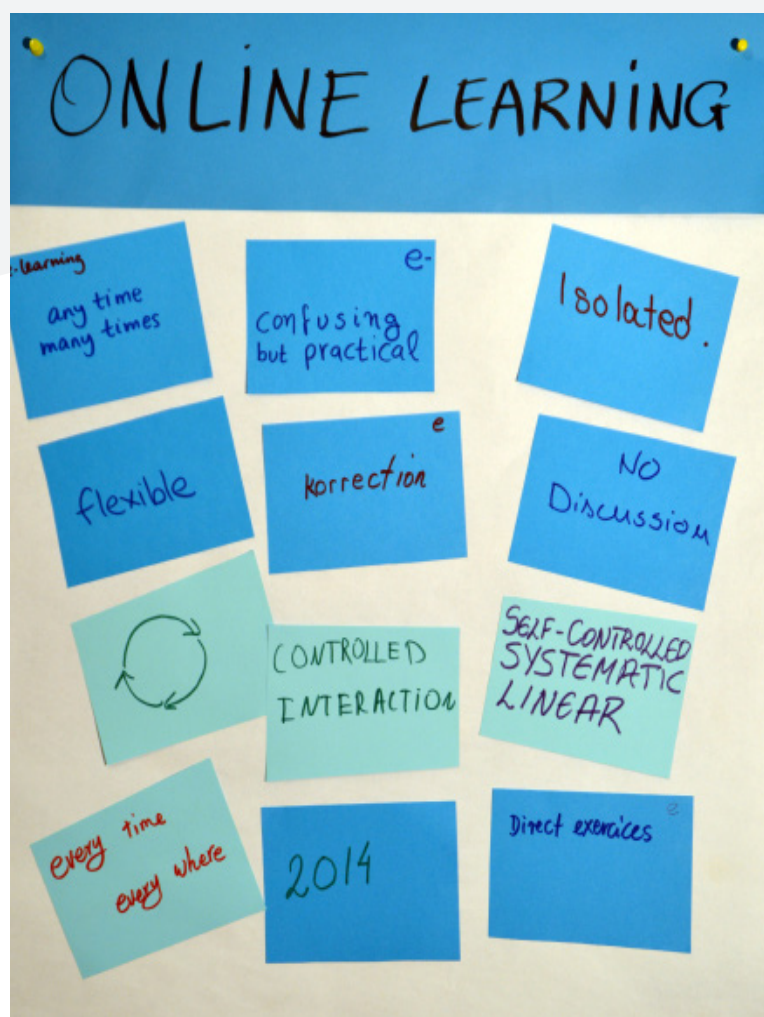 ONLINE LEARNING
e-learning
any time
many times
e-
confusing
but practical
Isolated.
flexible
e
korrection
NO
Discussion
CONTROLLED
INTERACTION
SELF-CONTROLLED
SYSTEMATIC
LINEAR
every time
every where
2014
e
Direct exercices